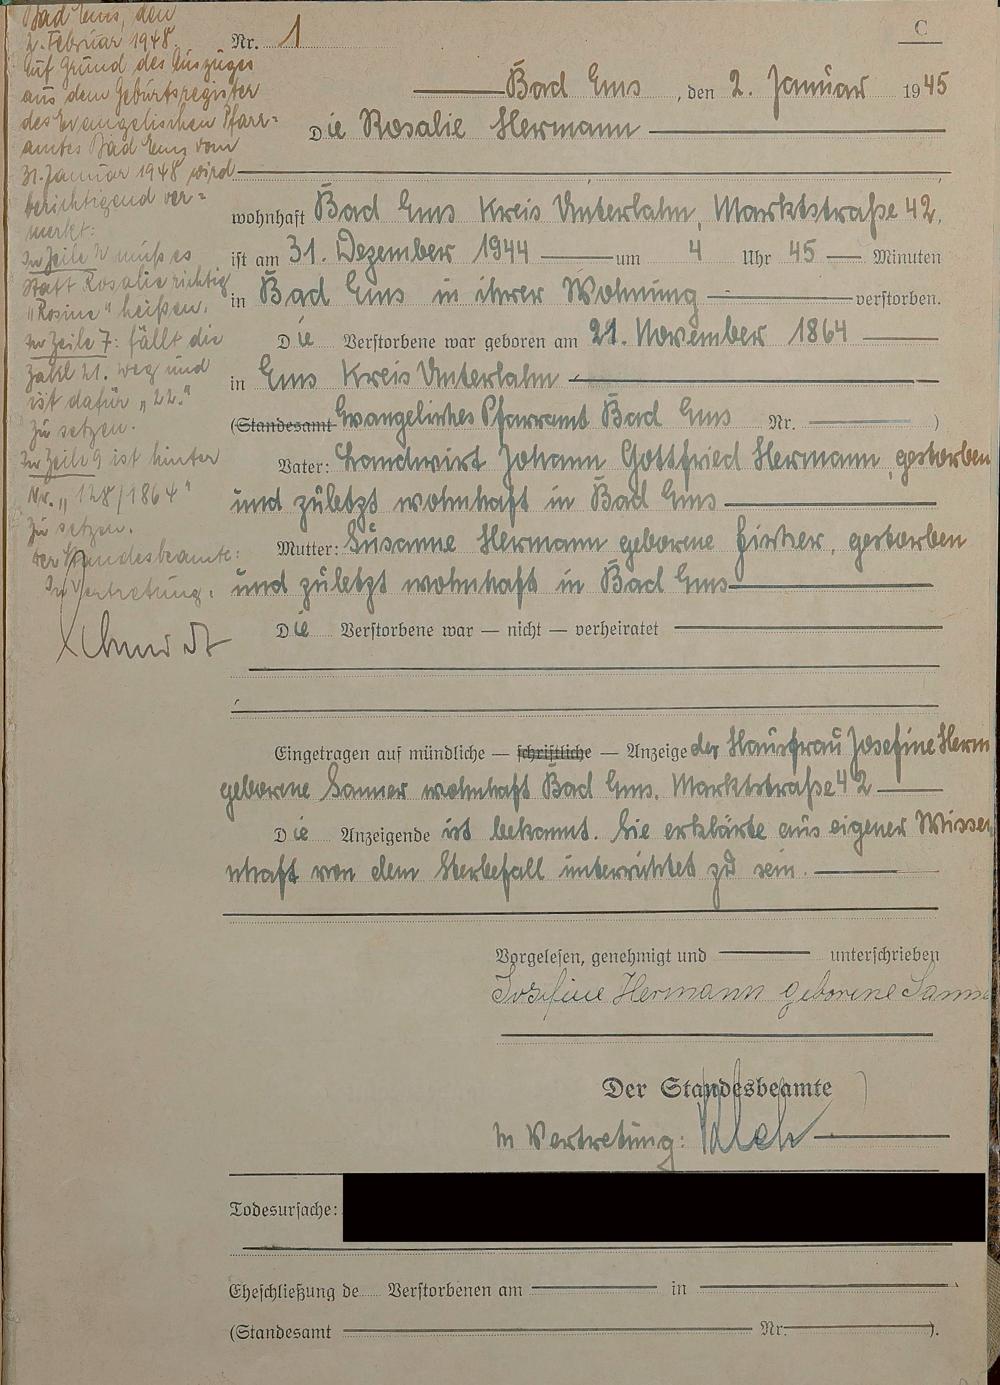 Bad Ems, den
2. Februar 1948.
Auf Grund des Auszuges
aus dem Geburtsregister
des Evangelischen Pfarr-
amtes Bad Ems vom
31. Januar 1948 wird
berichtigend ver-
merkt:
In Zeile 2 muß es
statt Rosalie richtig
„Rosine“ heißen.
In Zeile 7: fällt die
Zahl 21. weg und
ist dafür „22.“
zu setzen.
In Zeile 9 ist hinter
Nr. „128/1864“
zu setzen.
Der Standesbeamte:
In Vertretung:
Schmidt
C
Nr. 1
Bad Ems, den 2. Januar 1945
Die Rosalie Hermann
wohnhaft Bad Ems Kreis Unterlahn, Marktstraße 42,
ist am 31. Dezember 1944 um 4 Uhr 45 Minuten
in Bad Ems in ihrer Wohnung verstorben.
Die Verstorbene war geboren am 21. November 1864
in Ems Kreis Unterlahn
(Standesamt Evangelisches Pfarramt Bad Ems Nr. )
Vater: Landwirt Johann Gottfried Hermann, gestorben
und zuletzt wohnhaft in Bad Ems
Mutter: Susanne Hermann geborene, gestorben
und zuletzt wohnhaft in Bad Ems
Die Verstorbene war — nicht — verheiratet
Eingetragen auf mündliche — schriftliche — Anzeige der Hausfrau Josefine Herm
geborene Sanner wohnhaft Bad Ems, Marktstraße 42
Die Anzeigende ist bekannt. Sie erklärte aus eigener Wissen
schaft von dem Sterbefall unterrichtet zu sein.
Vorgelesen, genehmigt und unterschrieben
Josefine Hermann geborene Sann
Der Standesbeamte
In Vertretung:
Todesursache:
Eheschließung de Verstorbenen am in
(Standesamt Nr. ).